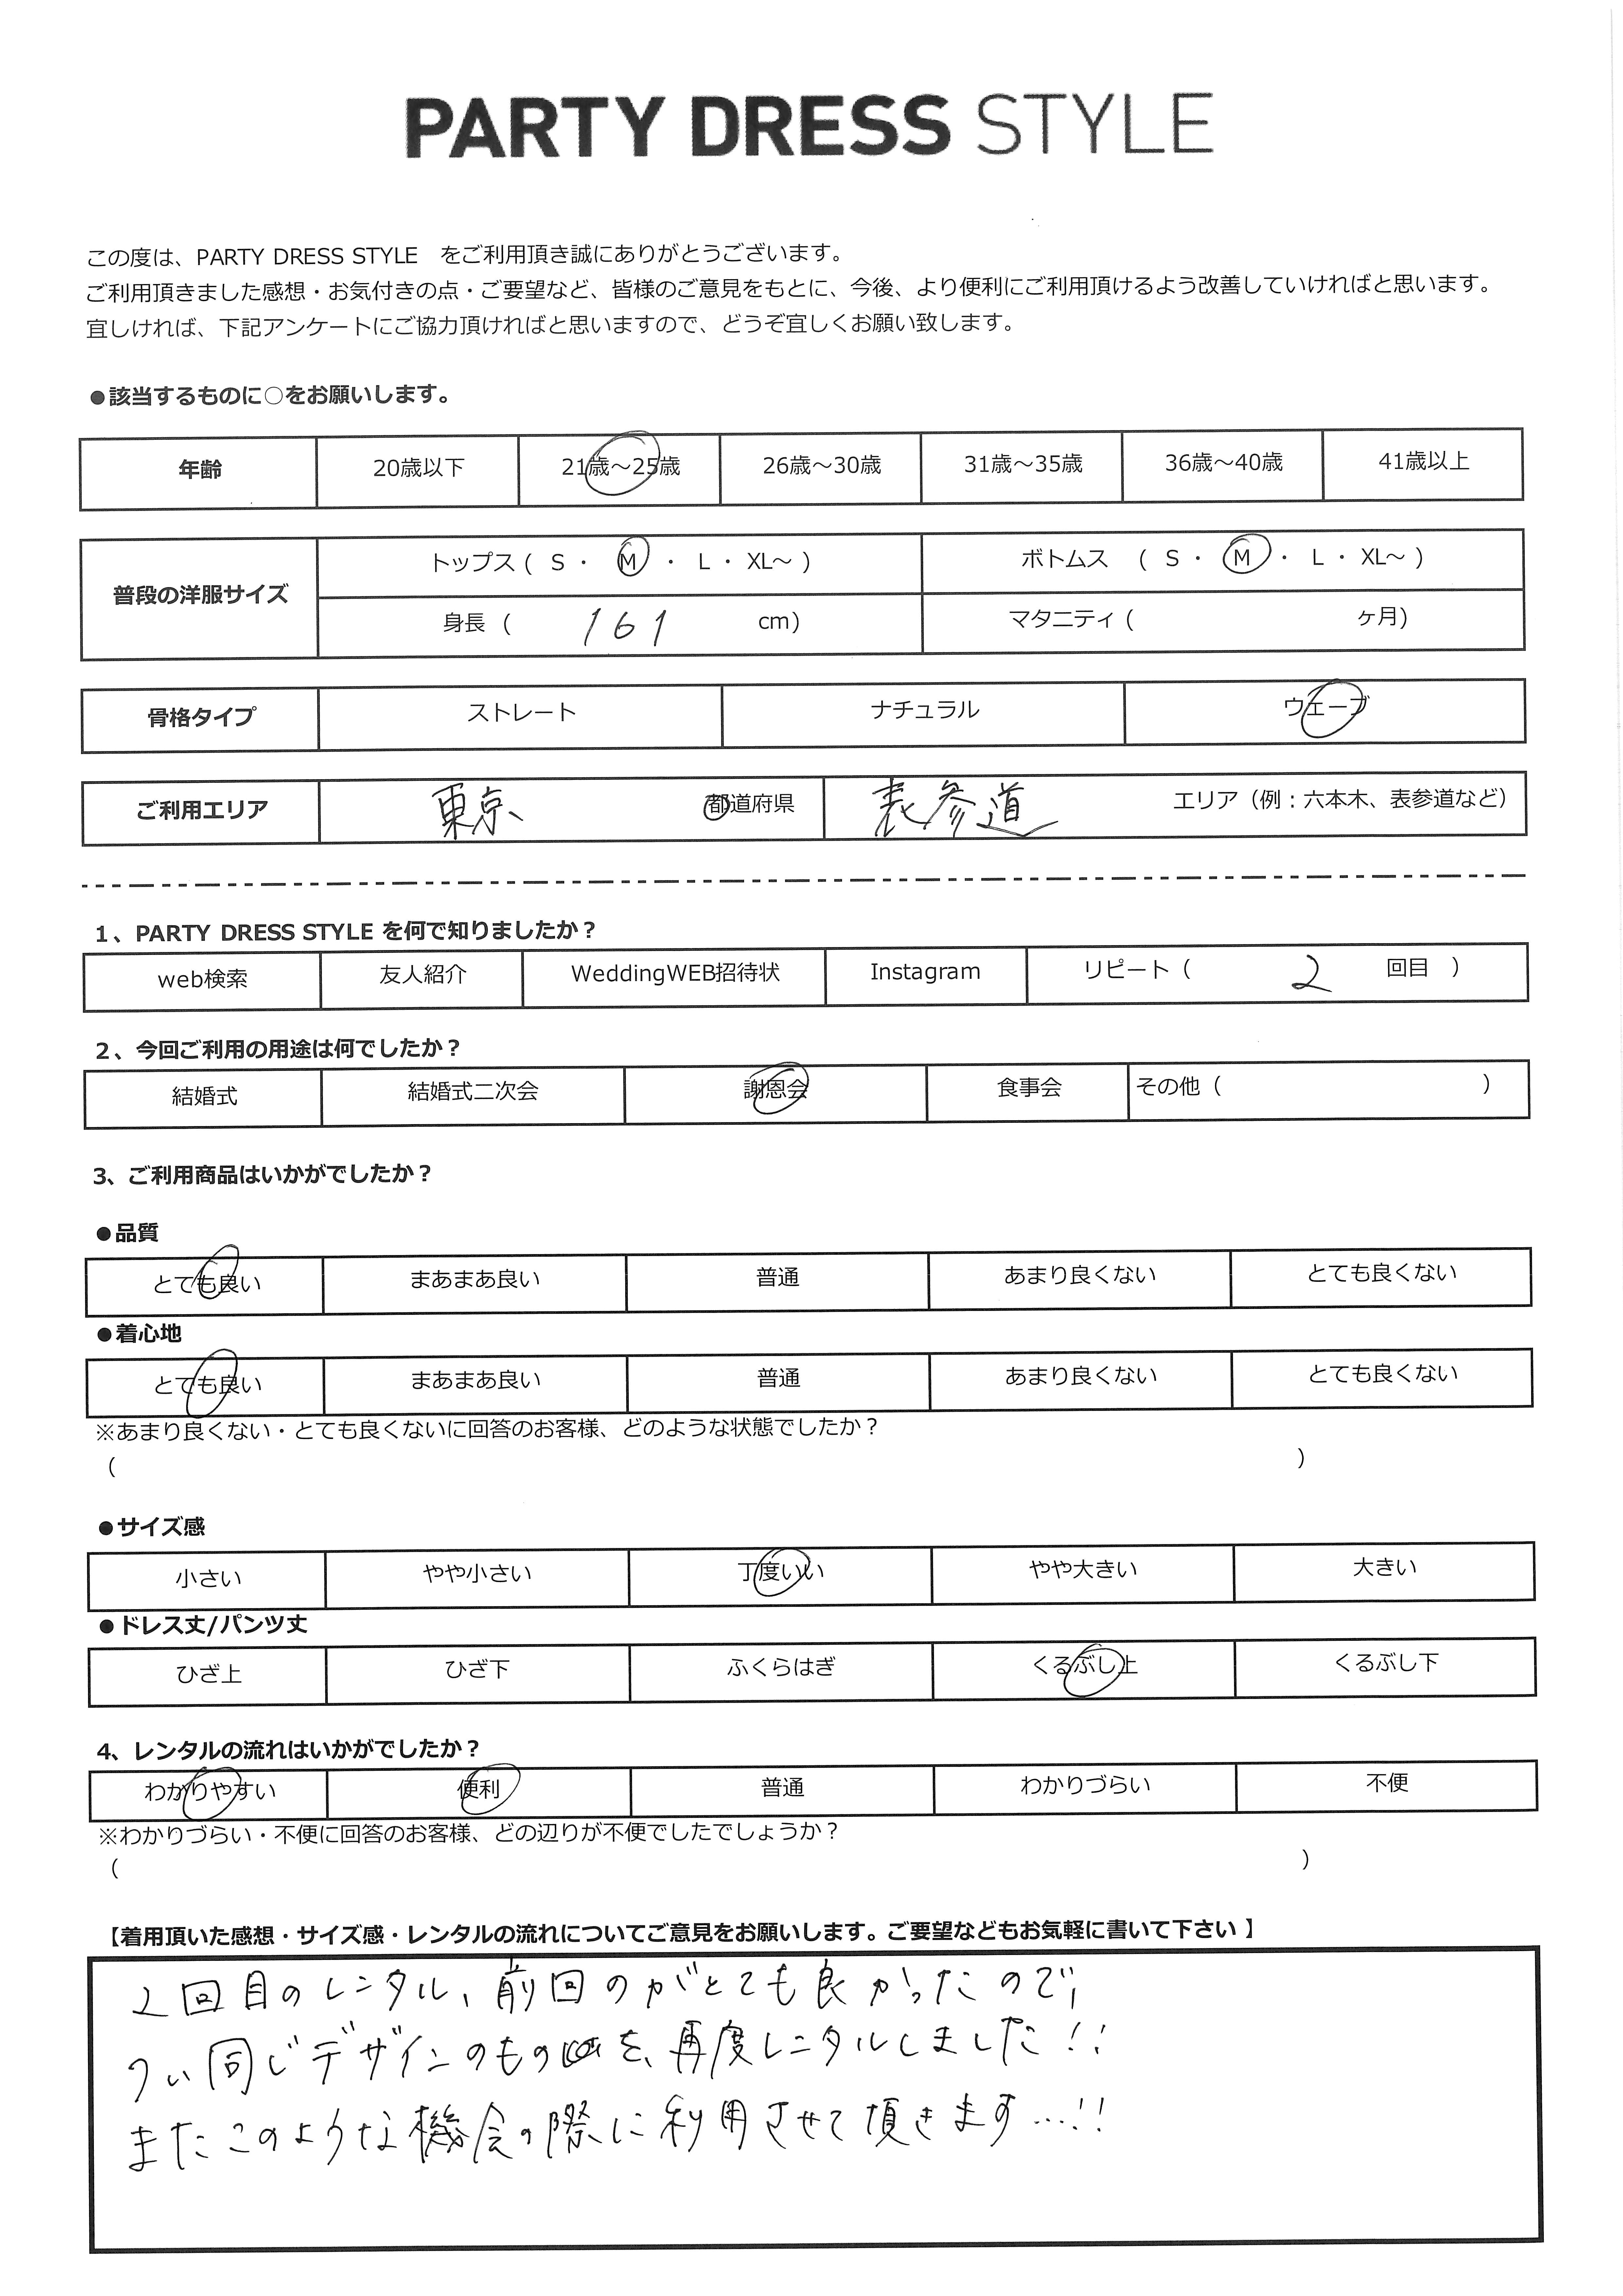 PARTY DRESS STYLE
この度は、PARTY DRESS STYLE をご利用頂き誠にありがとうございます。
ご利用頂きました感想・お気付きの点・ご要望など、皆様のご意見をもとに、今後、より便利にご利用頂けるよう改善していければと思います。
宜しければ、下記アンケートにご協力頂ければと思いますので、どうぞ宜しくお願い致します。
●該当するものに○をお願いします。
年齢 20歳以下 21歳～25歳 26歳～30歳 31歳～35歳 36歳～40歳 41歳以上
普段の洋服サイズ トップス ( S ・ M ・ L ・ XL～ ) ボトムス ( S ・ M ・ L ・ XL～ )
身長 ( 161 cm) マタニティ ( ヶ月)
骨格タイプ ストレート ナチュラル ウェーブ
ご利用エリア 東京 都道府県 表参道 エリア（例：六本木、表参道など）
1、PARTY DRESS STYLE を何で知りましたか？
web検索 友人紹介 WeddingWEB招待状 Instagram リピート ( 2 回目 )
2、今回ご利用の用途は何でしたか？
結婚式 結婚式二次会 謝恩会 食事会 その他 ( )
3、ご利用商品はいかがでしたか？
●品質
とても良い まあまあ良い 普通 あまり良くない とても良くない
●着心地
とても良い まあまあ良い 普通 あまり良くない とても良くない
※あまり良くない・とても良くないに回答のお客様、どのような状態でしたか？
( )
●サイズ感
小さい やや小さい 丁度いい やや大きい 大きい
●ドレス丈/パンツ丈
ひざ上 ひざ下 ふくらはぎ くるぶし上 くるぶし下
4、レンタルの流れはいかがでしたか？
わかりやすい 便利 普通 わかりづらい 不便
※わかりづらい・不便に回答のお客様、どの辺りが不便でしたでしょうか？
( )
【着用頂いた感想・サイズ感・レンタルの流れについてご意見をお願いします。ご要望などもお気軽に書いて下さい 】
2回目のレンタル、前回のがとても良かったので、
つい同じデザインのものを、再度レンタルしました!!
またこのような機会の際に利用させて頂きます…!!